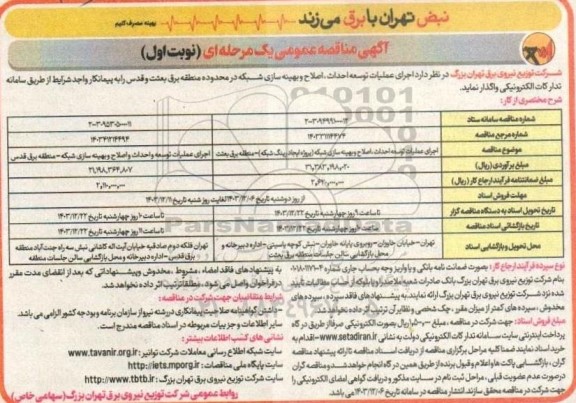 نبض تهران با برق می زند
بهینه مصرف کنیم
آگهی مناقصه عمومی یک مرحله ای (نوبت اول)
شرکت توزیع نیروی برق تهران بزرگ در نظر دارد اجرای عملیات توسعه احداث، اصلاح و بهینه سازی شبکه در محدوده منطقه برق بعثت و قدس را به پیمانکار واجد شرایط از طریق سامانه
تدارکات الکترونیکی واگذار نماید.
شرح مختصری از کار:
شماره مناقصه سامانه ستاد
شماره مرجع مناقصه
موضوع مناقصه
اجرای عملیات توسعه احداث، اصلاح و بهینه سازی شبکه (پروژه ایجاد رینگ شبکه) - منطقه برق بعثت
اجرای عملیات توسعه و احداث و اصلاح و بهینه سازی شبکه - منطقه برق قدس
مبلغ برآوردی (ریال)
مبلغ ضمانتنامه فرآیند ارجاع کار (ریال)
مهلت فروش اسناد
از روز دوشنبه تاریخ ۱۴۰۳/۱۲/۰۶ لغایت روز شنبه تاریخ ۱۴۰۳/۱۲/۱۱
تاریخ تحویل اسناد به دستگاه مناقصه گزار
تا ساعت ۹ روز چهارشنبه تاریخ ۱۴۰۳/۱۲/۲۲
تاریخ بازگشائی اسناد مناقصه
محل تحویل و بازگشایی اسناد
تهران - خیابان خاوران - روبروی پایانه خاوران - نبش کوچه یاسینی - اداره دبیرخانه و
محل بازگشایی سالن جلسات منطقه برق بعثت
تهران فلکه دوم صادقیه خیابان آیت اله کاشانی نبش سه راه جنت آباد منطقه
برق قدس - اداره دبیرخانه و محل بازگشایی سالن جلسات منطقه
نوع سپرده فرآیند ارجاع کار: بصورت ضمانت نامه بانکی و یا واریز وجه بحساب جاری شماره
بنام شرکت توزیع نیروی برق تهران بزرگ بانک صادرات شعبه
شده نزد شرکت توزیع نیروی برق تهران بزرگ ارائه نمایند. به پیشنهادهای فاقد سپرده، سپرده های
مخدوش، سپرده های کمتر از میزان مقرر، چک شخصی و نظایر آن ترتیب اثر داده نخواهد شد.
مبلغ فروش اسناد: جهت شرکت در مناقصه، مبلغ ریال بصورت الکترونیکی صرفاً از طریق درگاه
پرداخت اینترنتی سایت سامانه تدارکات الکترونیکی دولت به نشانی www.setadiran.ir - اقدام به
خرید اسناد نمایند. ضمناً کلیه مراحل برگزاری مناقصه از دریافت اسناد مناقصه تا ارائه پیشنهاد مناقصه
گران، بازگشایی پاکت ها و اعلام و قبول برنده از طریق همین درگاه انجام خواهد شد و مناقصه گران
درصورت عدم عضویت قبلی، مراحل ثبت نام در سایت مذکور و دریافت گواهی امضای الکترونیکی را
جهت شرکت در مناقصه محقق سازند. انتشار مناقصه در سامانه تاریخ ۱۴۰۳/۱۲/۰۶ می باشد.
به پیشنهادهای فاقد امضاء، مشروط، مخدوش و پیشنهاداتی که بعد از انقضای مدت مقرر
در فراخوان واصل می شود، مطلقاً ترتیب اثر داده نخواهد شد.
شرایط متقاضیان جهت شرکت در مناقصه:
داشتن گواهینامه صلاحیت پیمانکاری در رشته نیرو از سازمان برنامه و بودجه کشور الزامی می باشد.
سایر اطلاعات و جزییات مربوطه در اسناد مناقصه مندرج است.
نشانی های کسب اطلاعات بیشتر:
سایت شبکه اطلاع رسانی معاملات شرکت توانیر: www.tavanir.org.ir
سایت پایگاه ملی مناقصات: http://iets.mporg.ir
سایت شرکت توزیع نیروی برق تهران بزرگ: http://www.tbtb.ir
روابط عمومی شرکت توزیع نیروی برق تهران بزرگ (سهامی خاص)